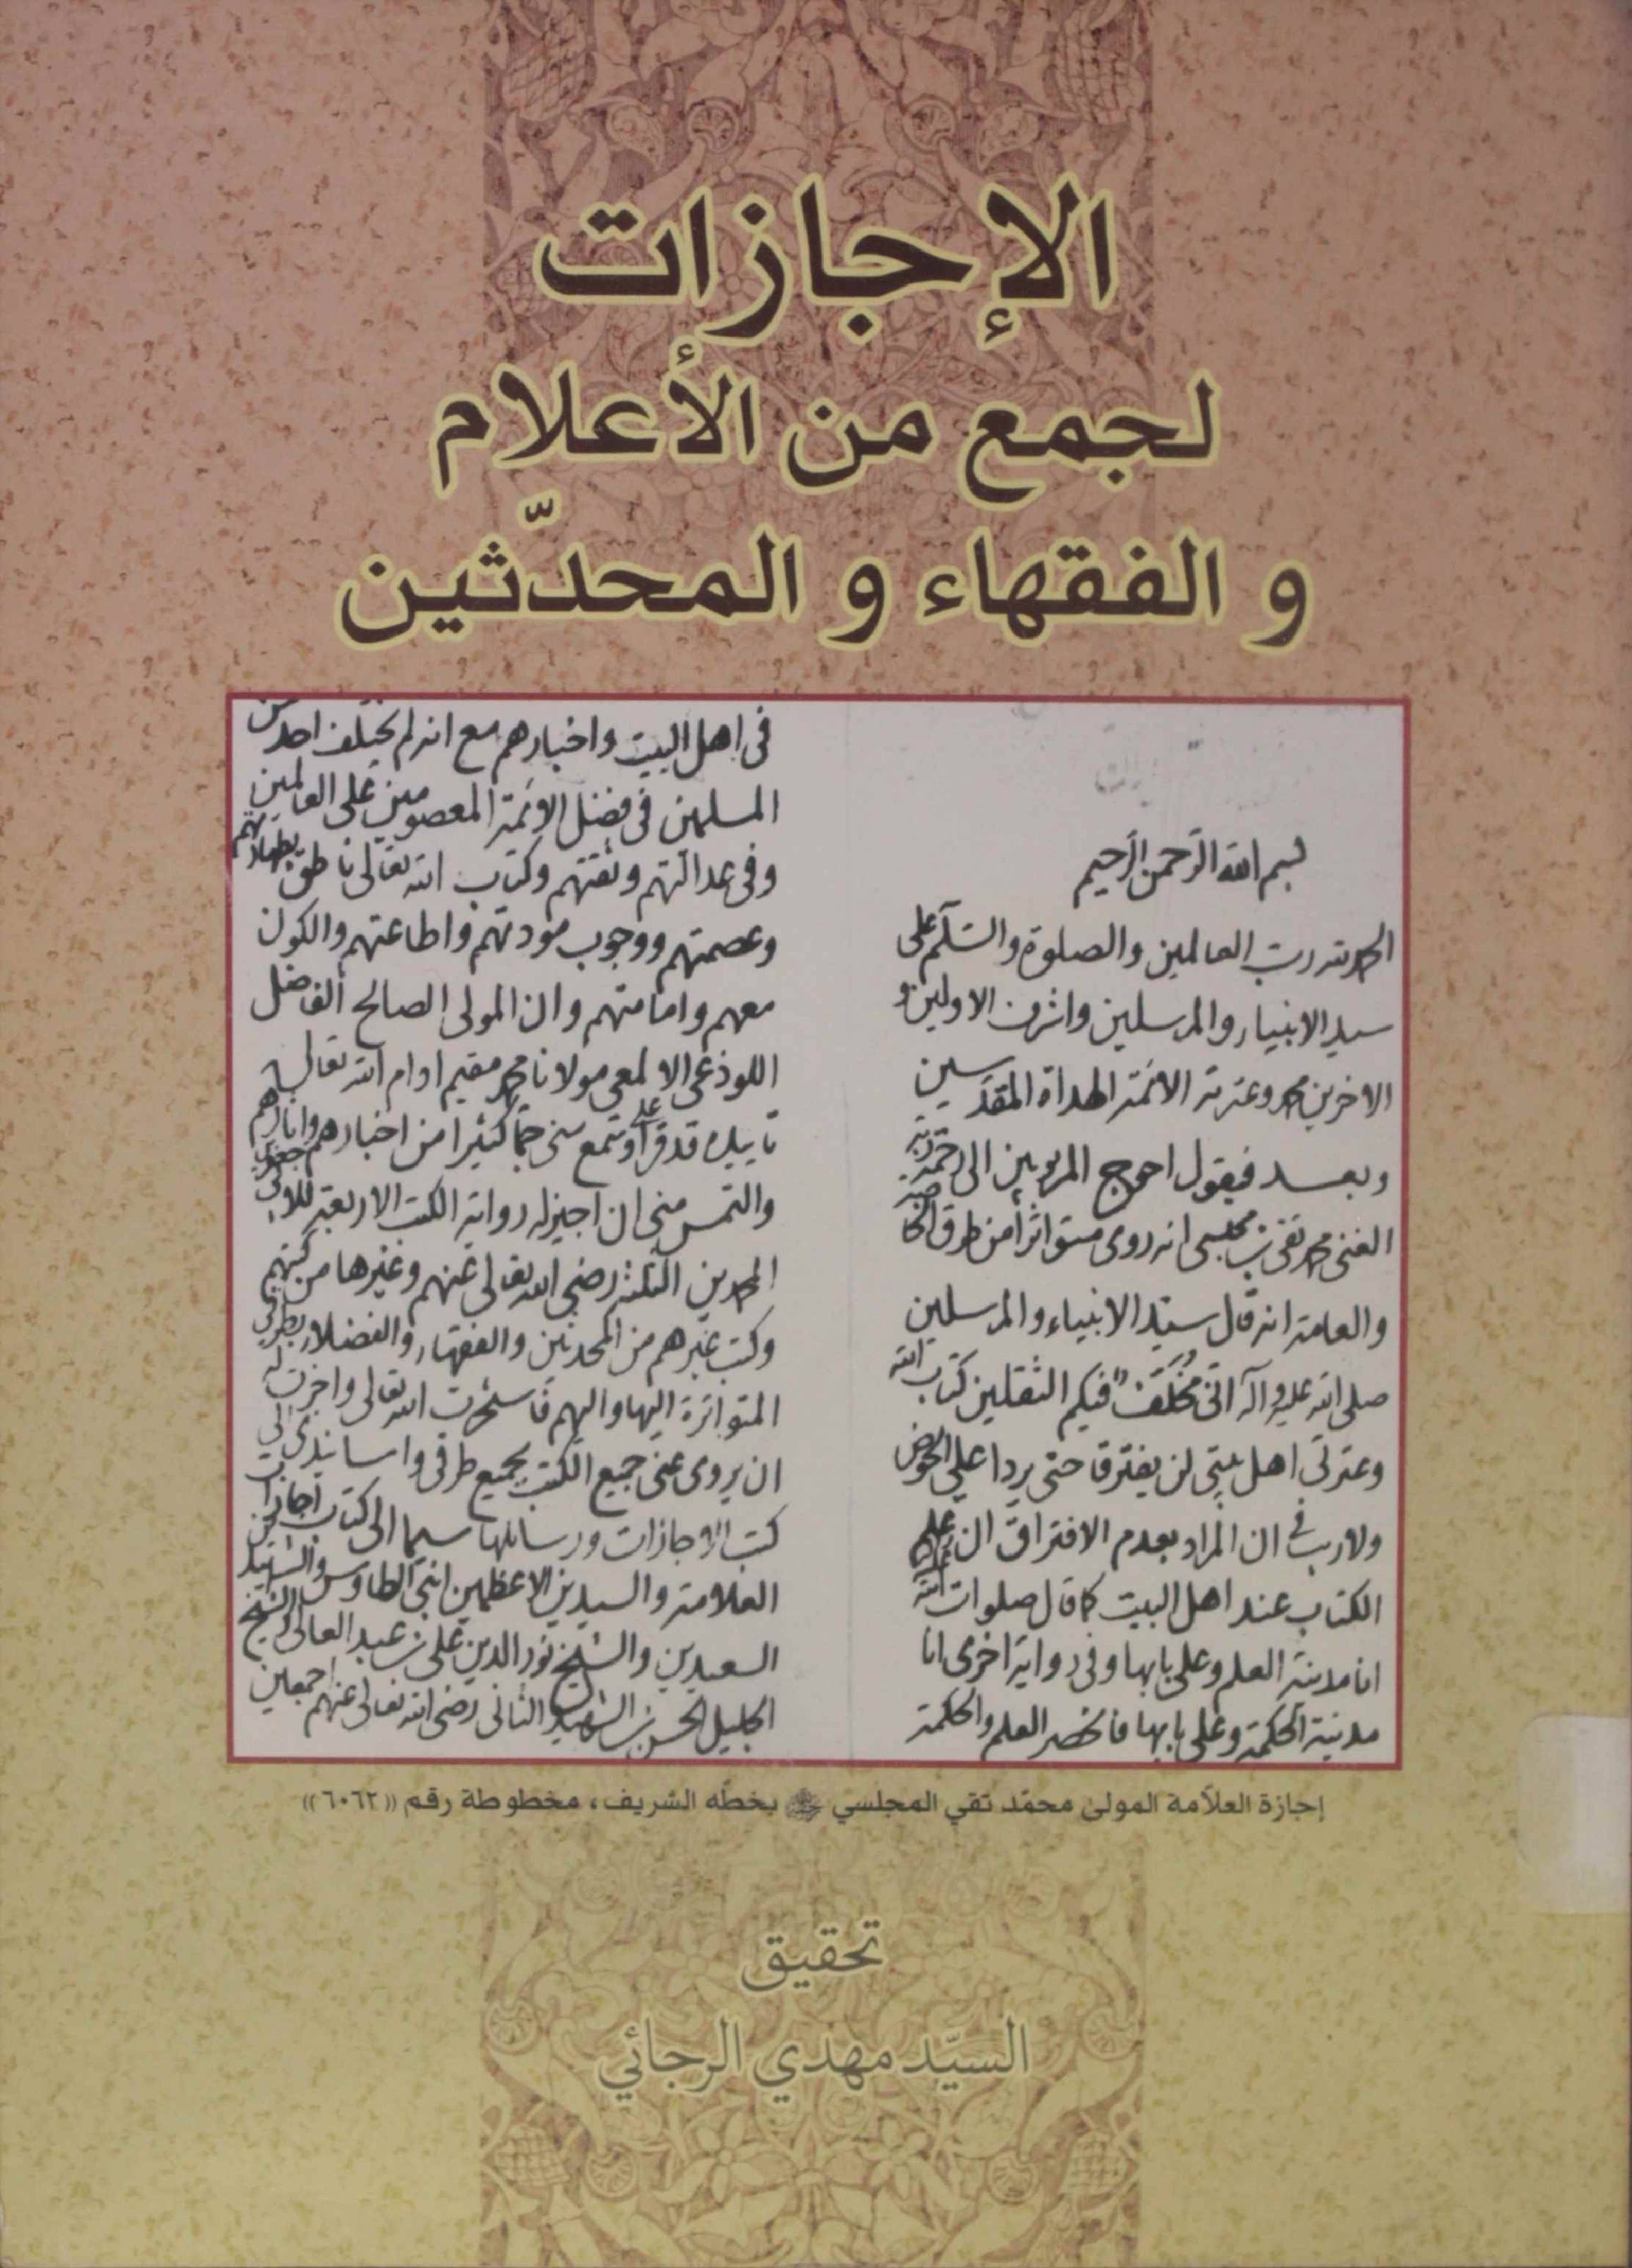 الإجازات
لجمع من الأعلام
و الفقهاء و المحدّثين
بسم الله الرحمن الرحيم
الحمد لله رب العالمين والصلوة والسلم على
سيد الانبياء والمرسلين واشرف الاولين و
الاخرين محمد وعترته الائمة الهداة المقدسين
وبعد فيقول احوج المربوبين الى رحمة ربه
الغنى محمد تقى بن مجلسى انه روى متواترا من طرق الخاصة
والعامة انه قال سيد الانبياء والمرسلين
صلى الله عليه وآله انى مخلف فيكم الثقلين كتاب الله
وعترتى اهل بيتى لن يفترقا حتى يردا على الحوض
ولا ريب فى ان المراد بعدم الافتراق ان علم
الكتاب عند اهل البيت كما قال صلوات الله
انا مدينة العلم وعلى بابها وفى رواية اخرى انا
مدينة الحكمة وعلى بابها فانحصر العلم والحكمة
فى اهل البيت واخبارهم مع انه لم يختلف احد من
المسلمين فى فضل الائمة المعصومين على العالمين
وفى عدالتهم وثقتهم وكتاب الله تعالى ناطق بطهارتهم
وعصمتهم ووجوب مودتهم واطاعتهم والكون
معهم وامامتهم وان المولى الصالح الفاضل
اللوذعى الالمعى مولانا محمد مقيم ادام الله تعالى
تاييده قد قرأ على وسمع منى جما كثيرا من اخبارهم واثارهم
والتمس منى ان اجيز له رواية الكتب الاربعة
المحمدين الثلثة رضى الله تعالى عنهم وغيرها من كتبهم
وكتب غيرهم من المحدثين والفقهاء والفضلاء بطرقى
المتواترة اليها واليهم فاستخرت الله تعالى واجزت له
ان يروى عنى جميع الكتب بجميع طرقى واسانيدى الى
كتب الاجازات ورسائلها سيما الى كتاب اجازات
العلامة والسيدين الاعظمين ابنى الطاوس والشهيدين
السعيدين والشيخ نور الدين على بن عبد العالى والشيخ
الجليل الحسن بن الشهيد الثانى رضى الله تعالى عنهم اجمعين
إجازة العلاّمة المولى محمّد تقي المجلسي بخطّه الشريف، مخطوطة رقم ((٦٠٦٢))
تحقيق
السيّد مهدي الرجائي